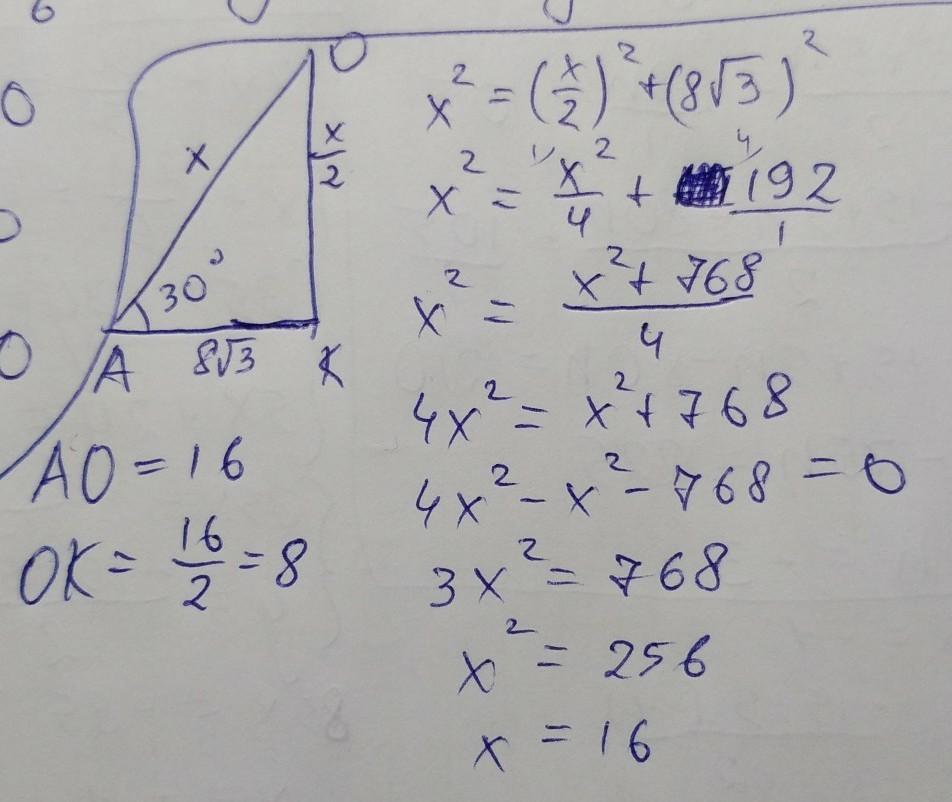 O
x
x/2
30°
A 8√3 K
AO = 16
OK = 16/2 = 8
x² = (x/2)² + (8√3)²
x² = ¹⁾x²/4 + ⁴⁾192/1
x² = (x² + 768)/4
4x² = x² + 768
4x² - x² - 768 = 0
3x² = 768
x² = 256
x = 16